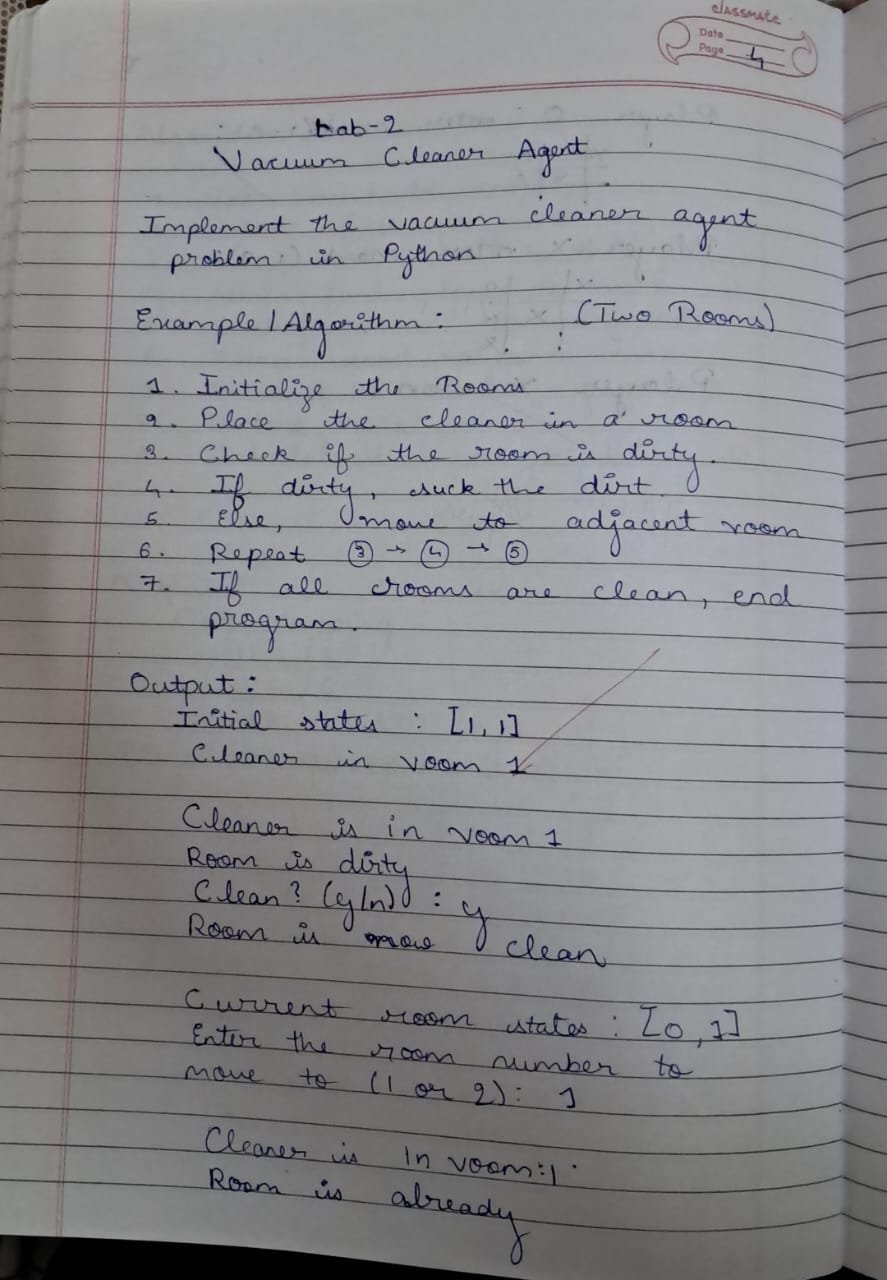 classmate
Date
Page 4
Lab-2
Vacuum Cleaner Agent
Implement the vacuum cleaner agent
problem in Python
Example / Algorithm : (Two Rooms)
1. Initialize the Rooms
2. Place the cleaner in a room
3. Check if the room is dirty.
4. If dirty, suck the dirt.
5. Else, move to adjacent room
6. Repeat ③ → ④ → ⑤
7. If all rooms are clean, end
program.
Output :
Initial states : [1, 1]
Cleaner in room 1
Cleaner is in room 1
Room is dirty
Clean? (y/n) : y
Room is now clean
Current room states : [0, 1]
Enter the room number to
move to (1 or 2): 1
Cleaner is in room : 1
Room is already